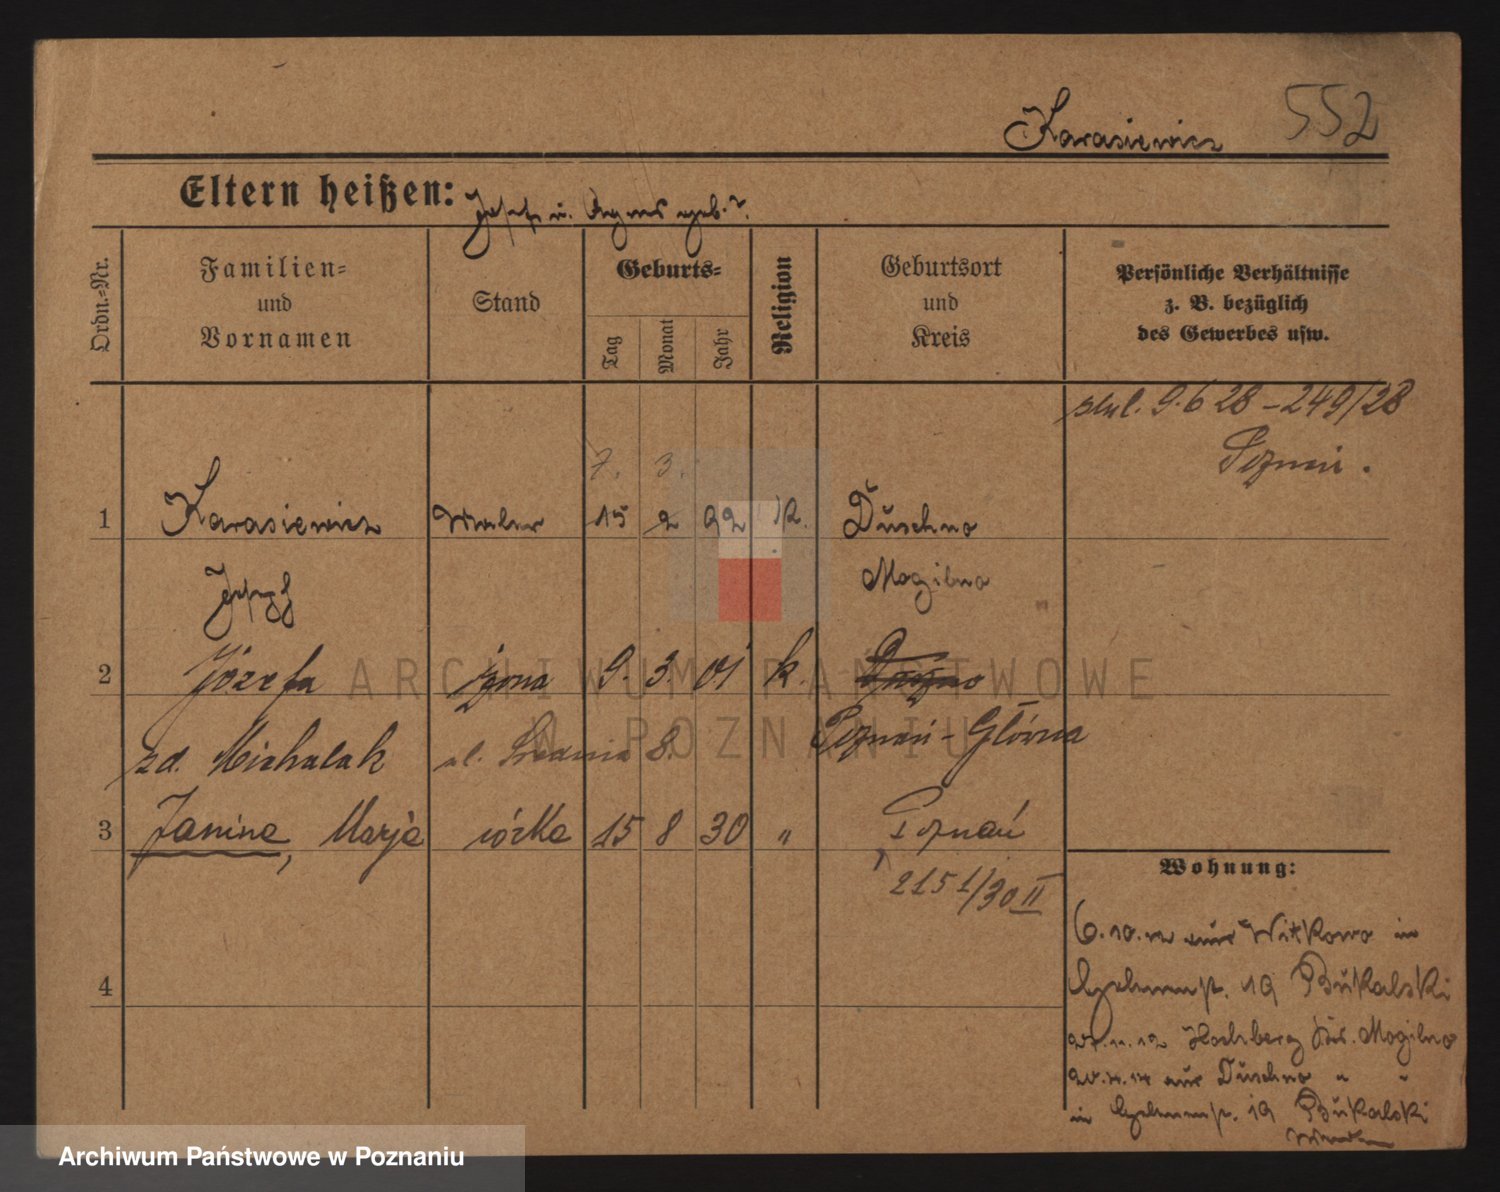 Karasiewicz 552
Eltern heißen: Josef u. Agnes geb. ?.
Ordn.=Nr.
Familien=
und
Vornamen
Stand
Geburts=
Tag
Monat
Jahr
Religion
Geburtsort
und
Kreis
Persönliche Verhältnisse
z. B. bezüglich
des Gewerbes usw.
9.6 28 – 249/28
Poznań.
7. 3.
1 Karasiewicz Maler 15 2 92 k. Duschno
Josef Mogilno
2 Józefa żona 9. 3. 01 k.
zd. Michalak ul. Średnia 8. Poznań - Główna
3 Janina, Marja córka 15 8 30 " Poznań
2151/30 II
4
Wohnung:
6.10.12 aus Witkowo in
19 Bukalski
27.11.12 Hochberg Kr. Mogilno
aus Duschno " "
in 19 Bukalski
ARCHIWUM PAŃSTWOWE
W POZNANIU
Archiwum Państwowe w Poznaniu